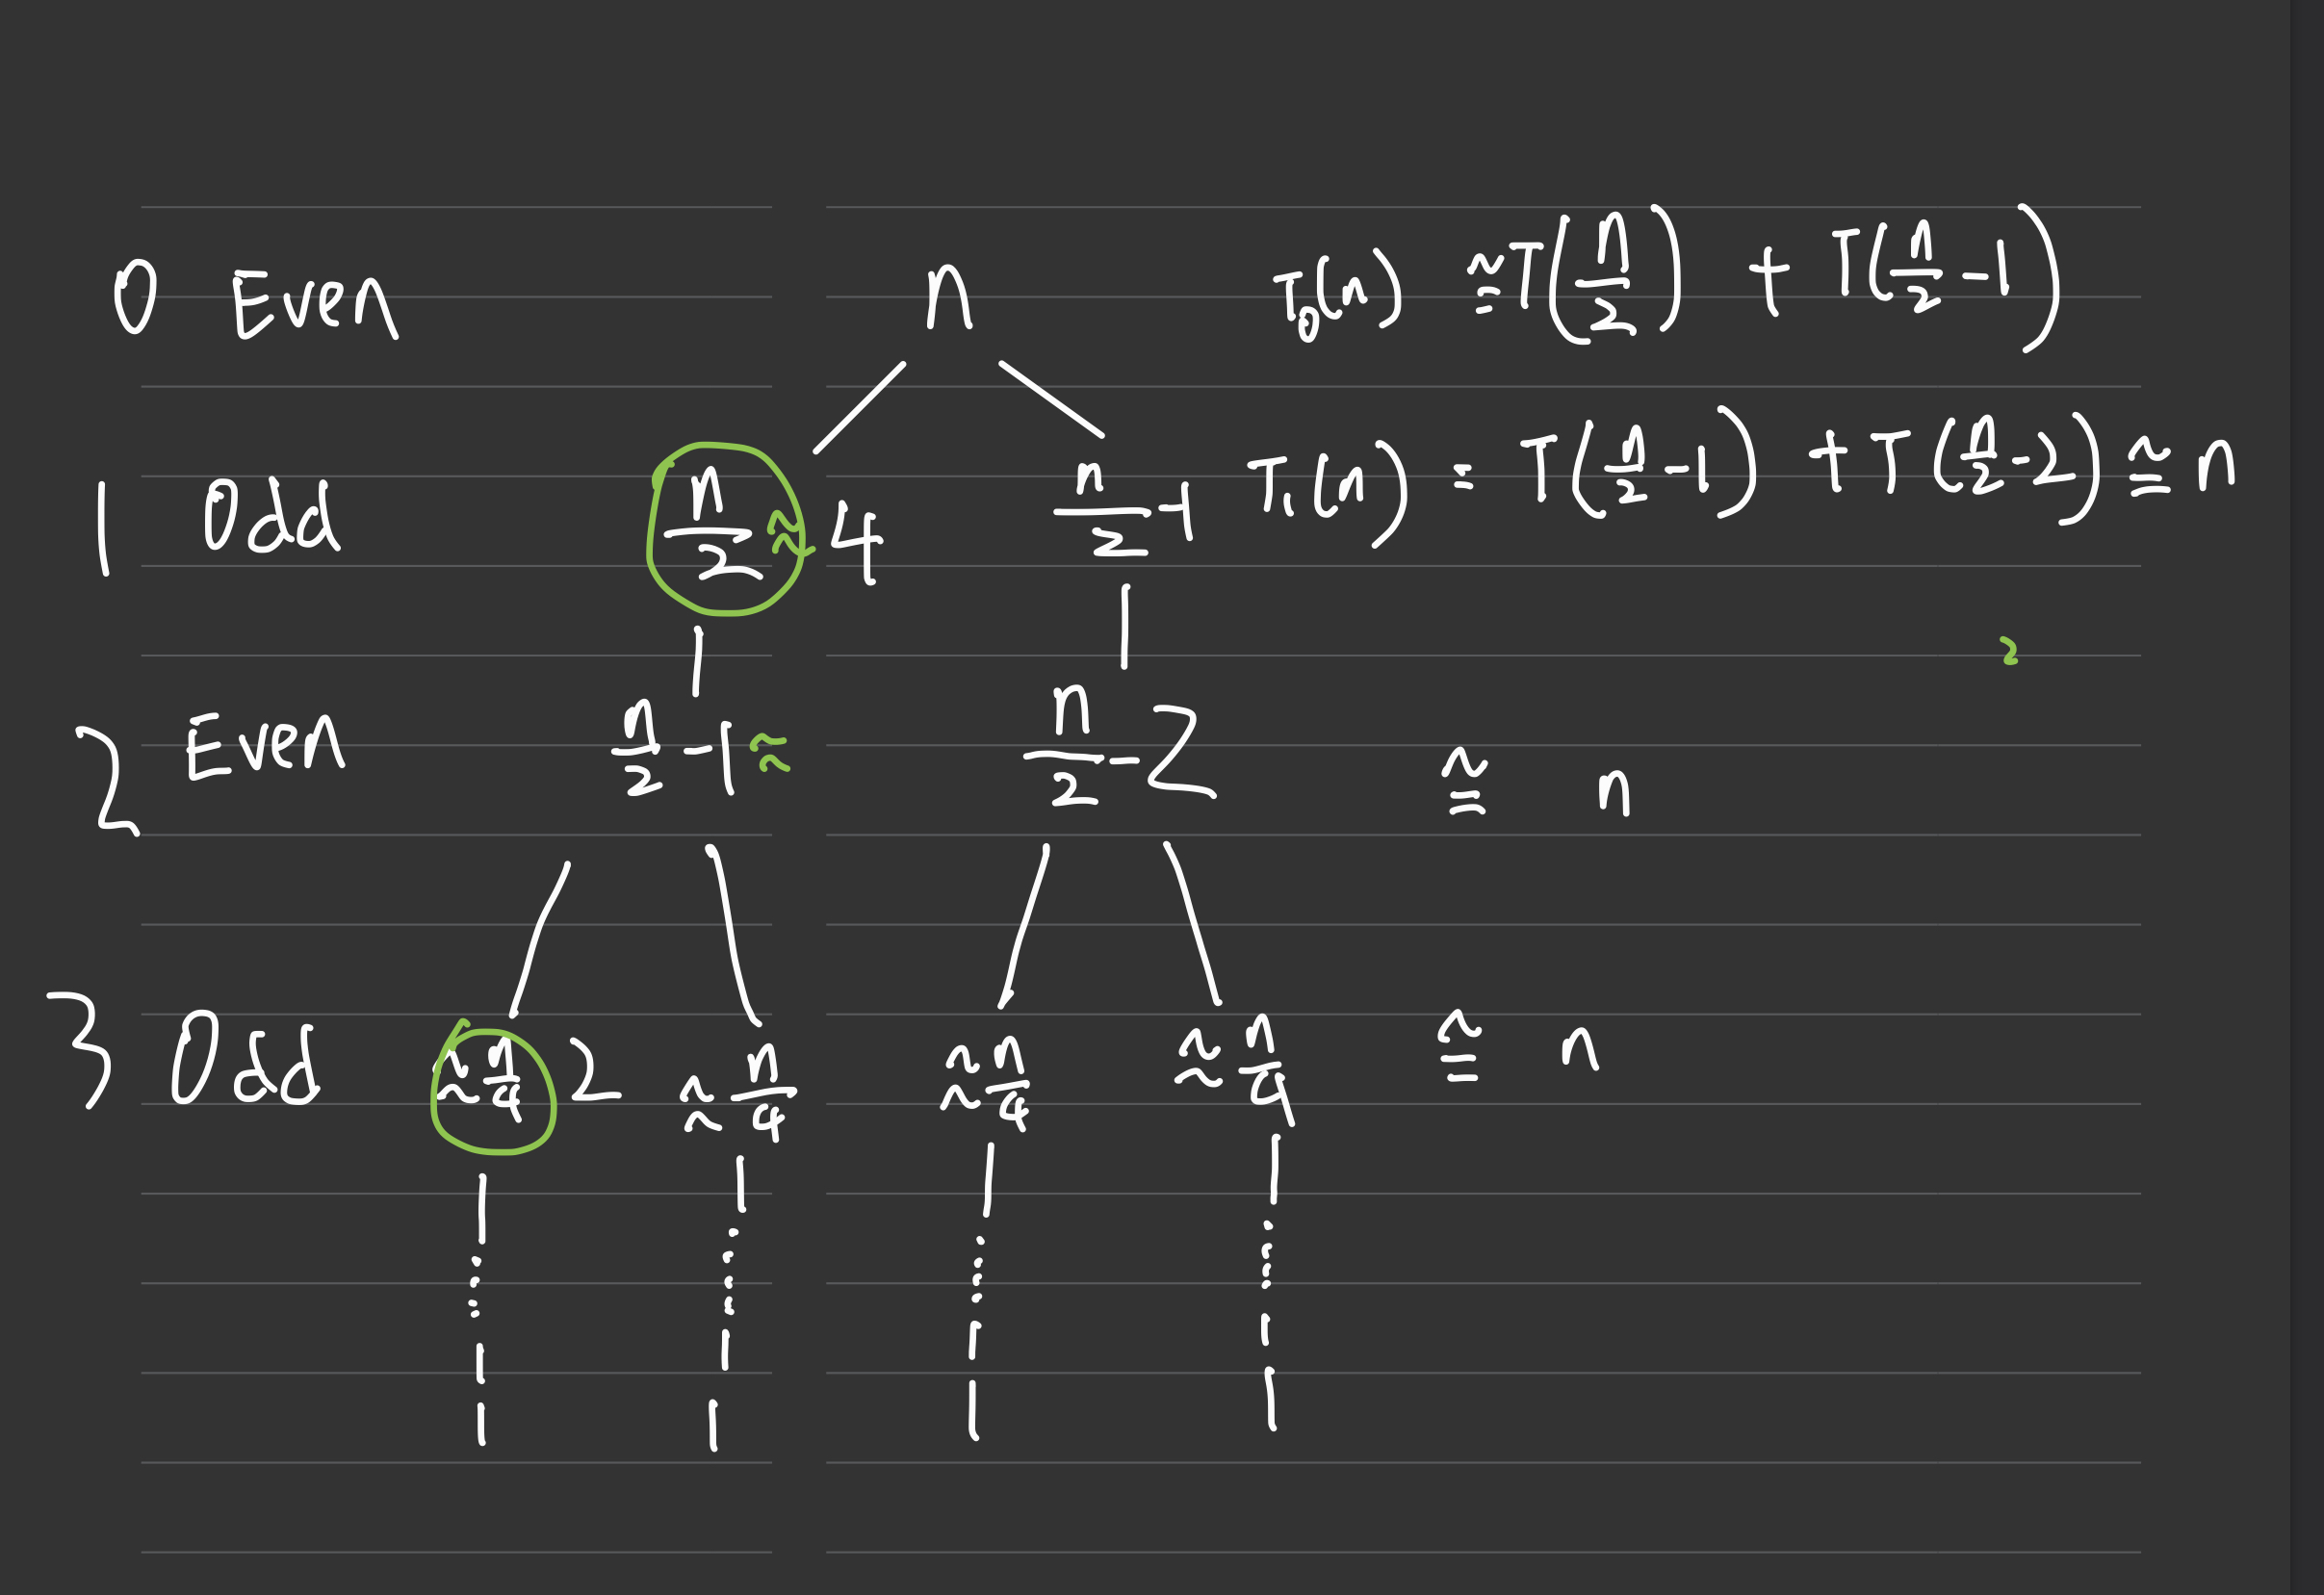 0 Even n T₀(n) ≅ T(n/2) + T(n/2 - 1)
1 odd n/2 ≈ + n/2 - 1 T₁(n) = T(n/2 - 1) + T(n/2 - 2) ≅ n
2
2 Even n/2 - 1 ≈ n/2 - 2 ≅ n
3 Odd ≈ n/4 2 ≈ n/4 ≈ n/4 ≈ n/4 ≅ n
1 1 1 1
1 1 1 1